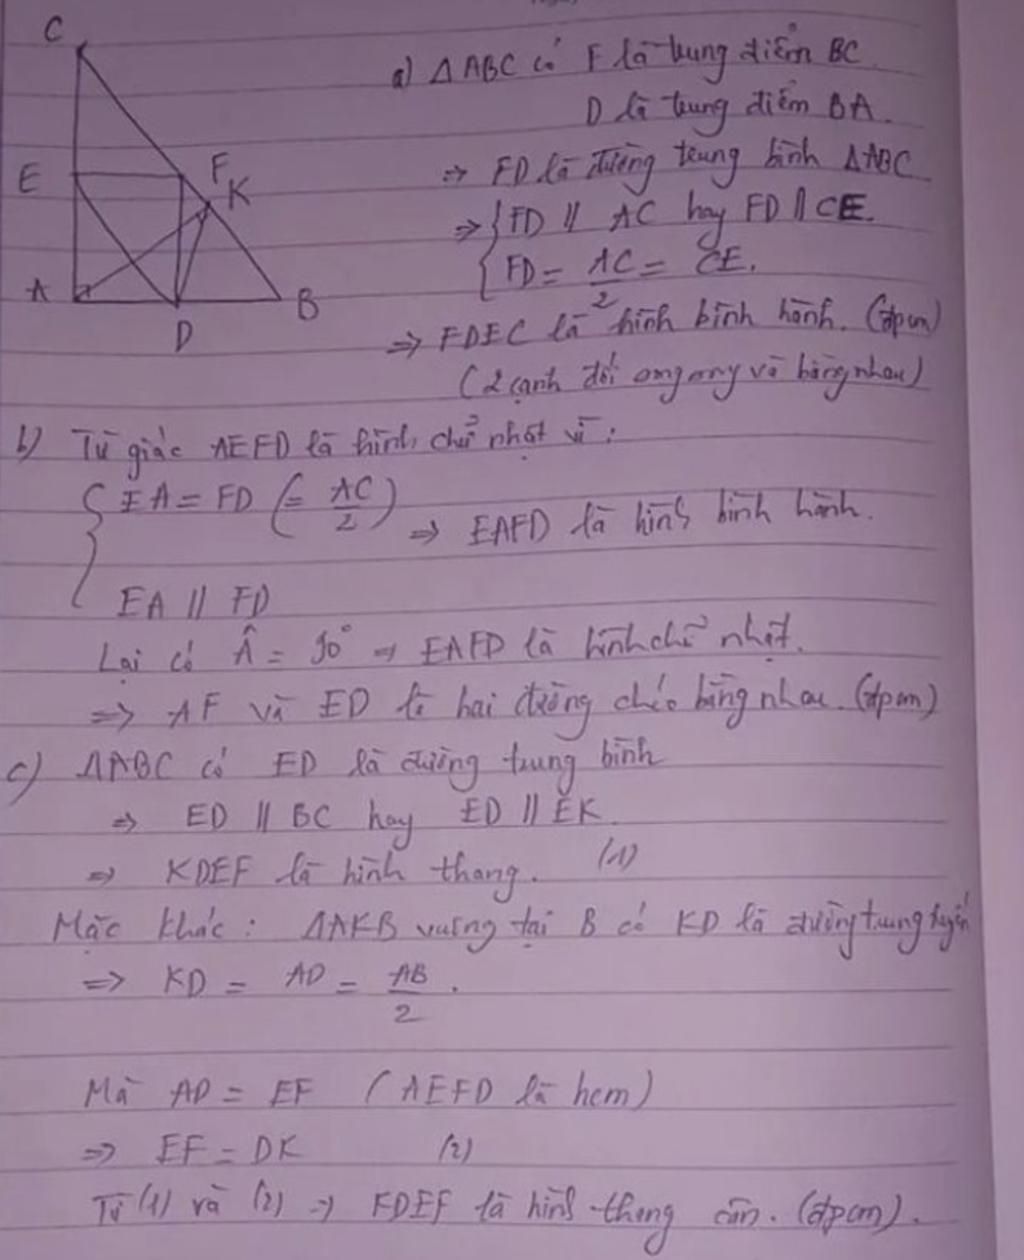 C
E
F
K
A
D
B
a) ΔABC có F là trung điểm BC.
D là trung điểm BA.
=> FD là đường trung bình ΔABC
=> { FD // AC hay FD // CE.
FD = AC/2 = CE.
=> FDEC là hình bình hành. (đpcm)
(2 cạnh đối song song và bằng nhau)
b) Tứ giác AEFD là hình chữ nhật vì:
{ EA = FD (= AC/2) => EAFD là hình bình hành.
EA // FD
Lại có Â = 90° => EAFD là hình chữ nhật.
=> AF và ED là hai đường chéo bằng nhau. (đpcm)
c) ΔABC có ED là đường trung bình
=> ED // BC hay ED // EK.
=> KDEF là hình thang. (1)
Mặc khác: ΔAKB vuông tại B có KD là đường trung tuyến
=> KD = AD = AB/2.
Mà AD = EF (AEFD là hcm)
=> EF = DK (2)
Từ (1) và (2) => KDEF là hình thang cân. (đpcm).